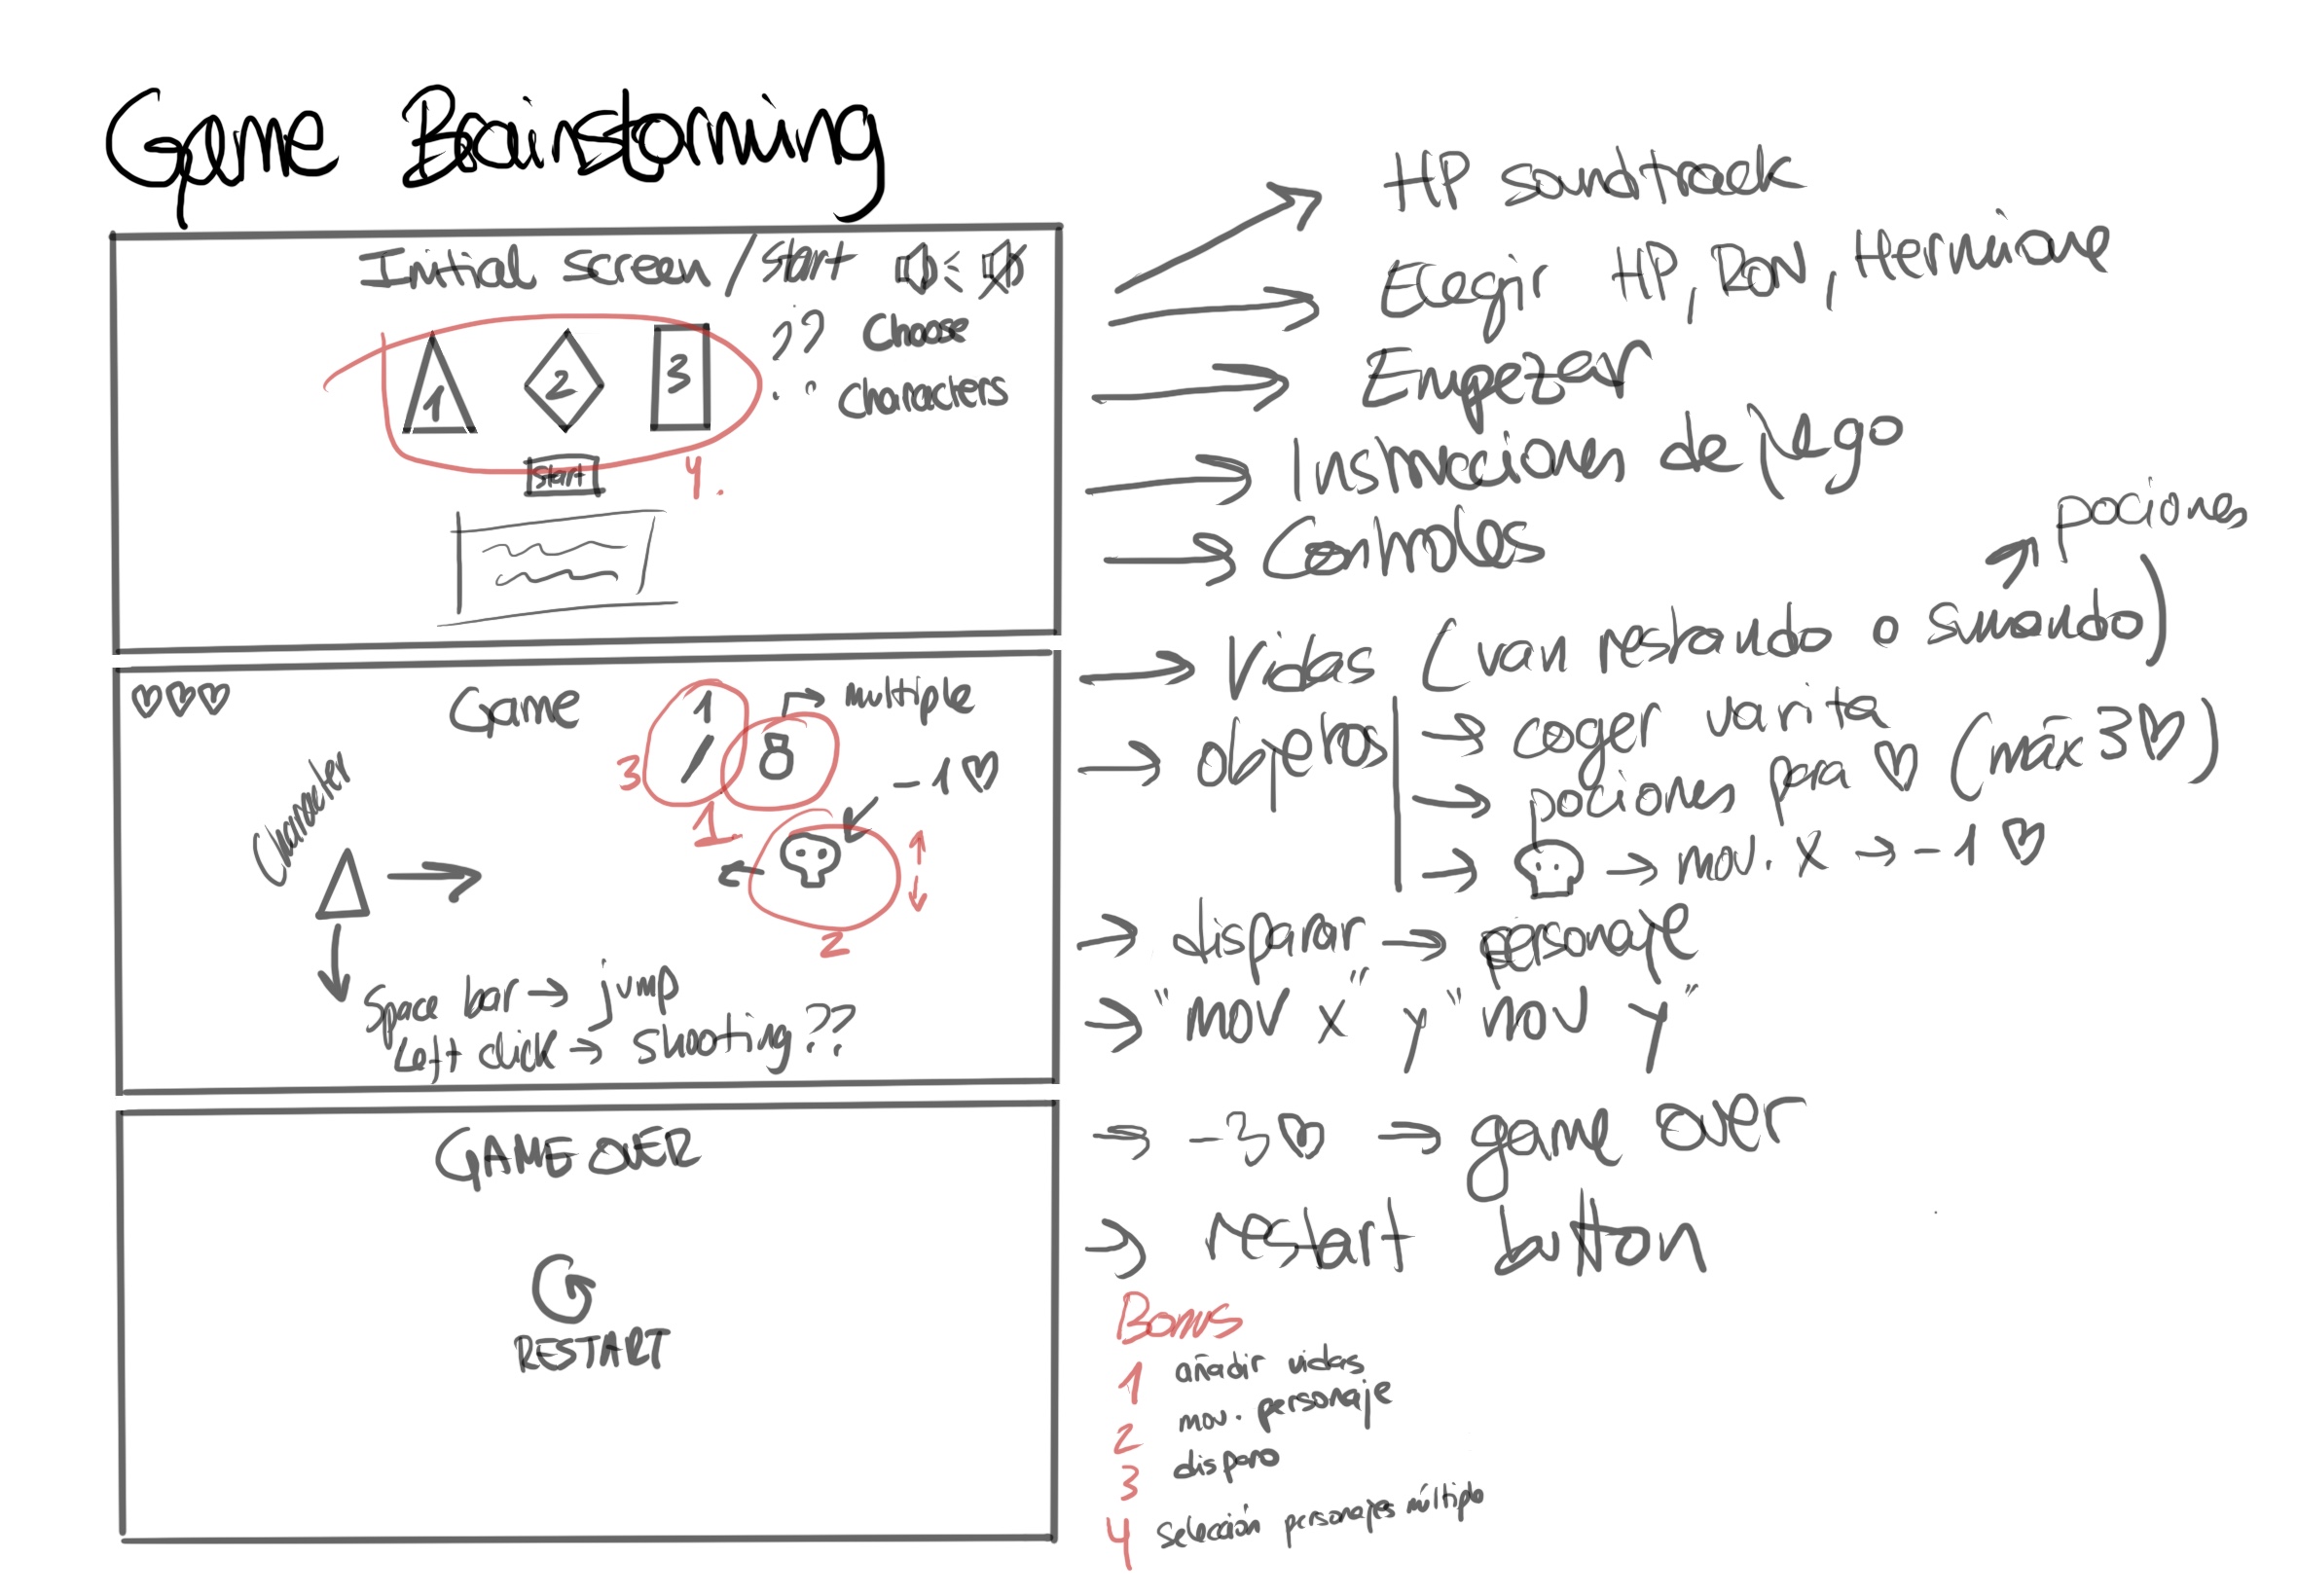 Game Brainstorming
Initial screen / Start
1 2 3
?? Choose
characters
Start
4.
Game
1
multiple
3
1.
-1
Character
2
Space bar → jump
Left click → shooting??
GAME OVER
RESTART
→ HP soundtrack
→ HP, RON, Hermione
→ Empezar
→ Instrucciones de juego
→ Controles
pociones
→ Vidas (van restando o sumando)
→ objetos → coger varita
→ pociones para ♡ (máx 3♡)
→ mov. X → -1 ♡
→ disparar → personaje
→ "MOV X" y "MOV Y"
→ -3♡ → game over
→ restart button
Bonus
1 añadir vidas
2 mov. personaje
3 disparo
4 selección personajes múltiple